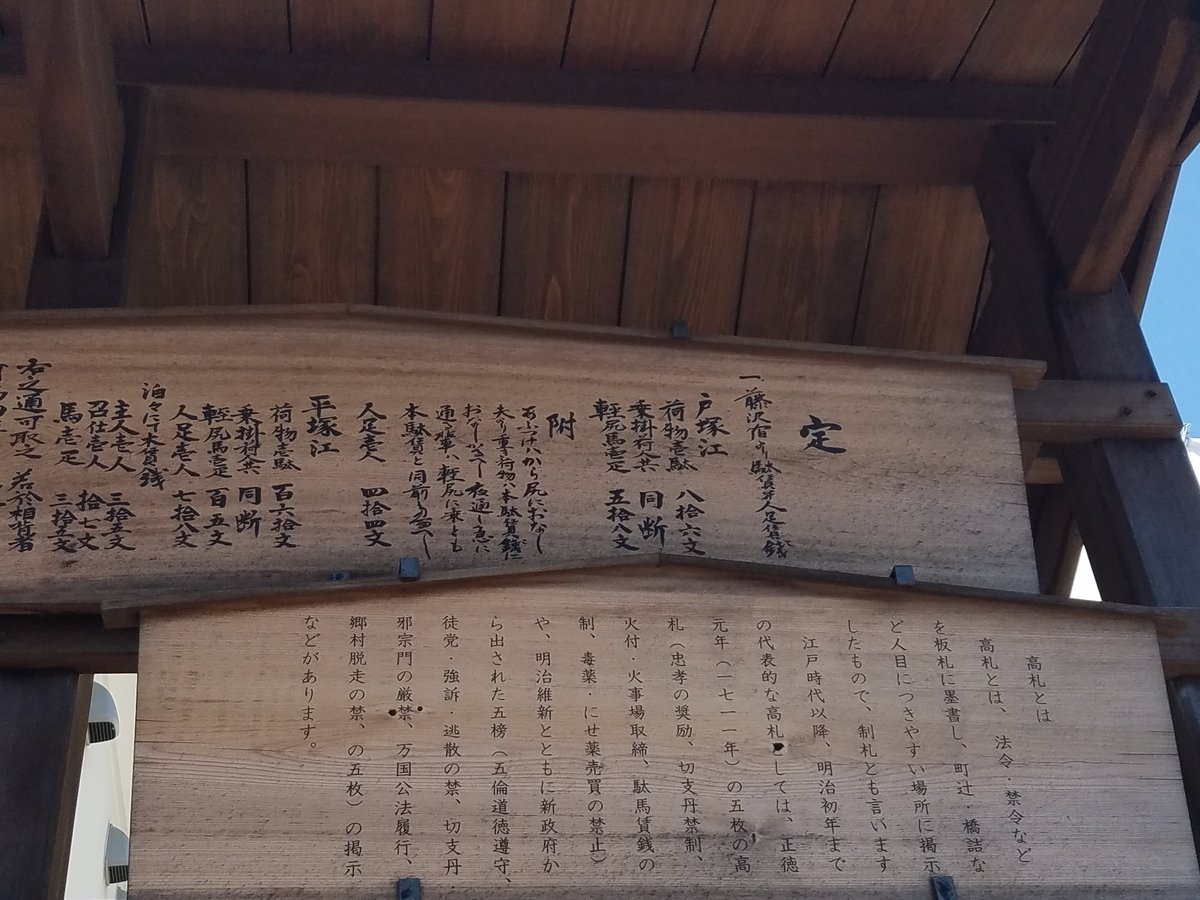 定
一 藤沢宿より駄賃并人足賃銭
戸塚江
荷物壱駄 八拾六文
乗掛荷人共 同断
軽尻馬壱疋 五拾八文
附
あふつけハから尻におなし
夫より重き荷物ハ本駄賃銭に
おなしかるへし夜通し急に
通る輩ハ軽尻に乗とも
本駄賃と同前たるへし
人足壱人 四拾四文
平塚江
荷物壱駄 百六拾文
乗掛荷人共 同断
軽尻馬壱疋 百五文
人足壱人 七拾八文
泊々にて木賃銭
主人壱人 三拾五文
召仕壱人 拾七文
馬壱疋 三拾五文
右之通可取之若於相背者
高札とは
高札とは、法令・禁令など
を板札に墨書し、町辻・橋詰な
ど人目につきやすい場所に掲示
したもので、制札とも言います
江戸時代以降、明治初年まで
の代表的な高札としては、正徳
元年(一七一一年)の五枚の高
札(忠孝の奨励、切支丹禁制、
火付・火事場取締、駄馬賃銭の
制、毒薬・にせ薬売買の禁止)
や、明治維新とともに新政府か
ら出された五榜(五倫道徳遵守、
徒党・強訴・逃散の禁、切支丹
邪宗門の厳禁、万国公法履行、
郷村脱走の禁、の五枚)の掲示
などがあります。